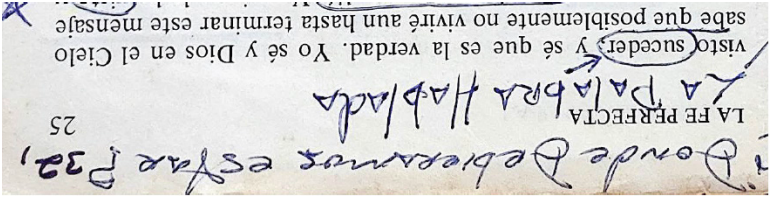 Donde Debieramos estar P32,
LA FE PERFECTA 25
LA PALAbRA HAblada
visto suceder; y sé que es la verdad. Yo sé y Dios en el Cielo
sabe que posiblemente no viviré aun hasta terminar este mensaje